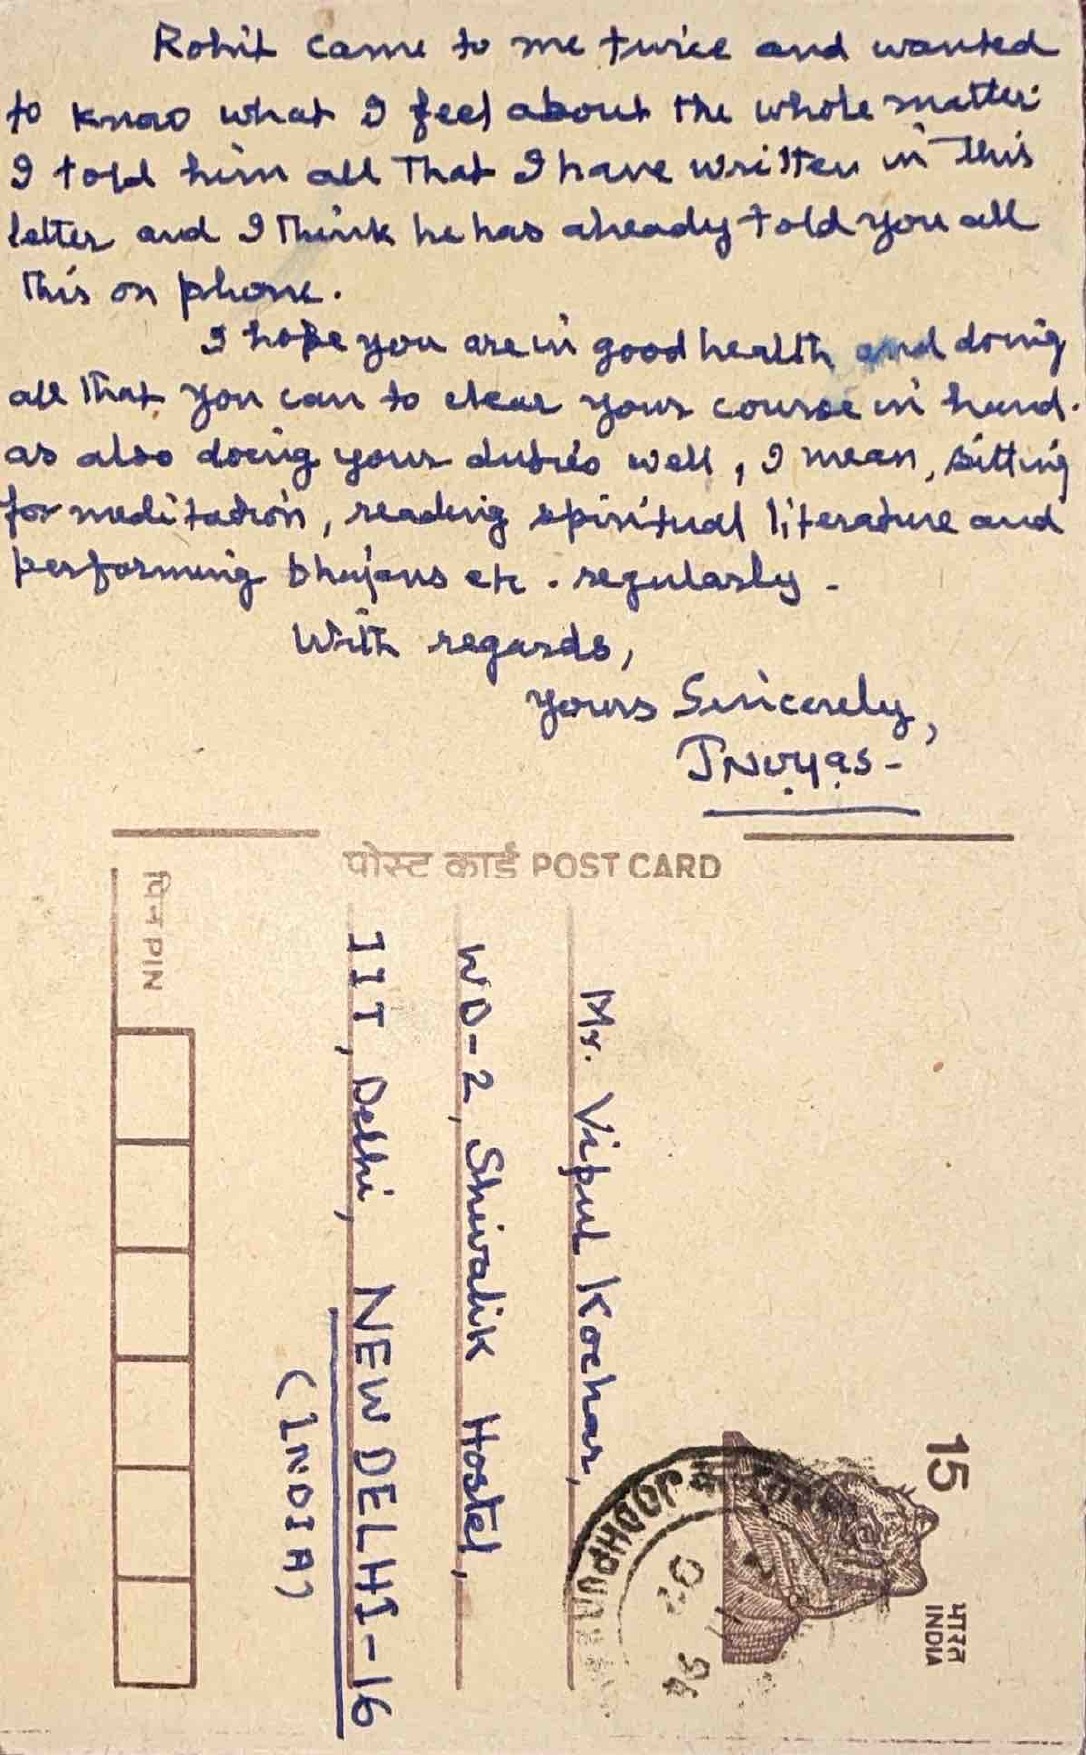 Rohit came to me twice and wanted
to know what I feel about the whole matter.
I told him all that I have written in this
letter and I think he has already told you all
this on phone.
I hope you are in good health and doing
all that you can to clear your course in hand.
as also doing your duties well, I mean, sitting
for meditation, reading spiritual literature and
performing bhajans etc. regularly -
With regards,
Yours Sincerely,
पोस्ट कार्ड POST CARD
Mr. Vipul Kochar,
WD-2, Shivalik Hostel,
IIT, Delhi, NEW DELHI-16
(INDIA)
पिन PIN
15
भारत
INDIA